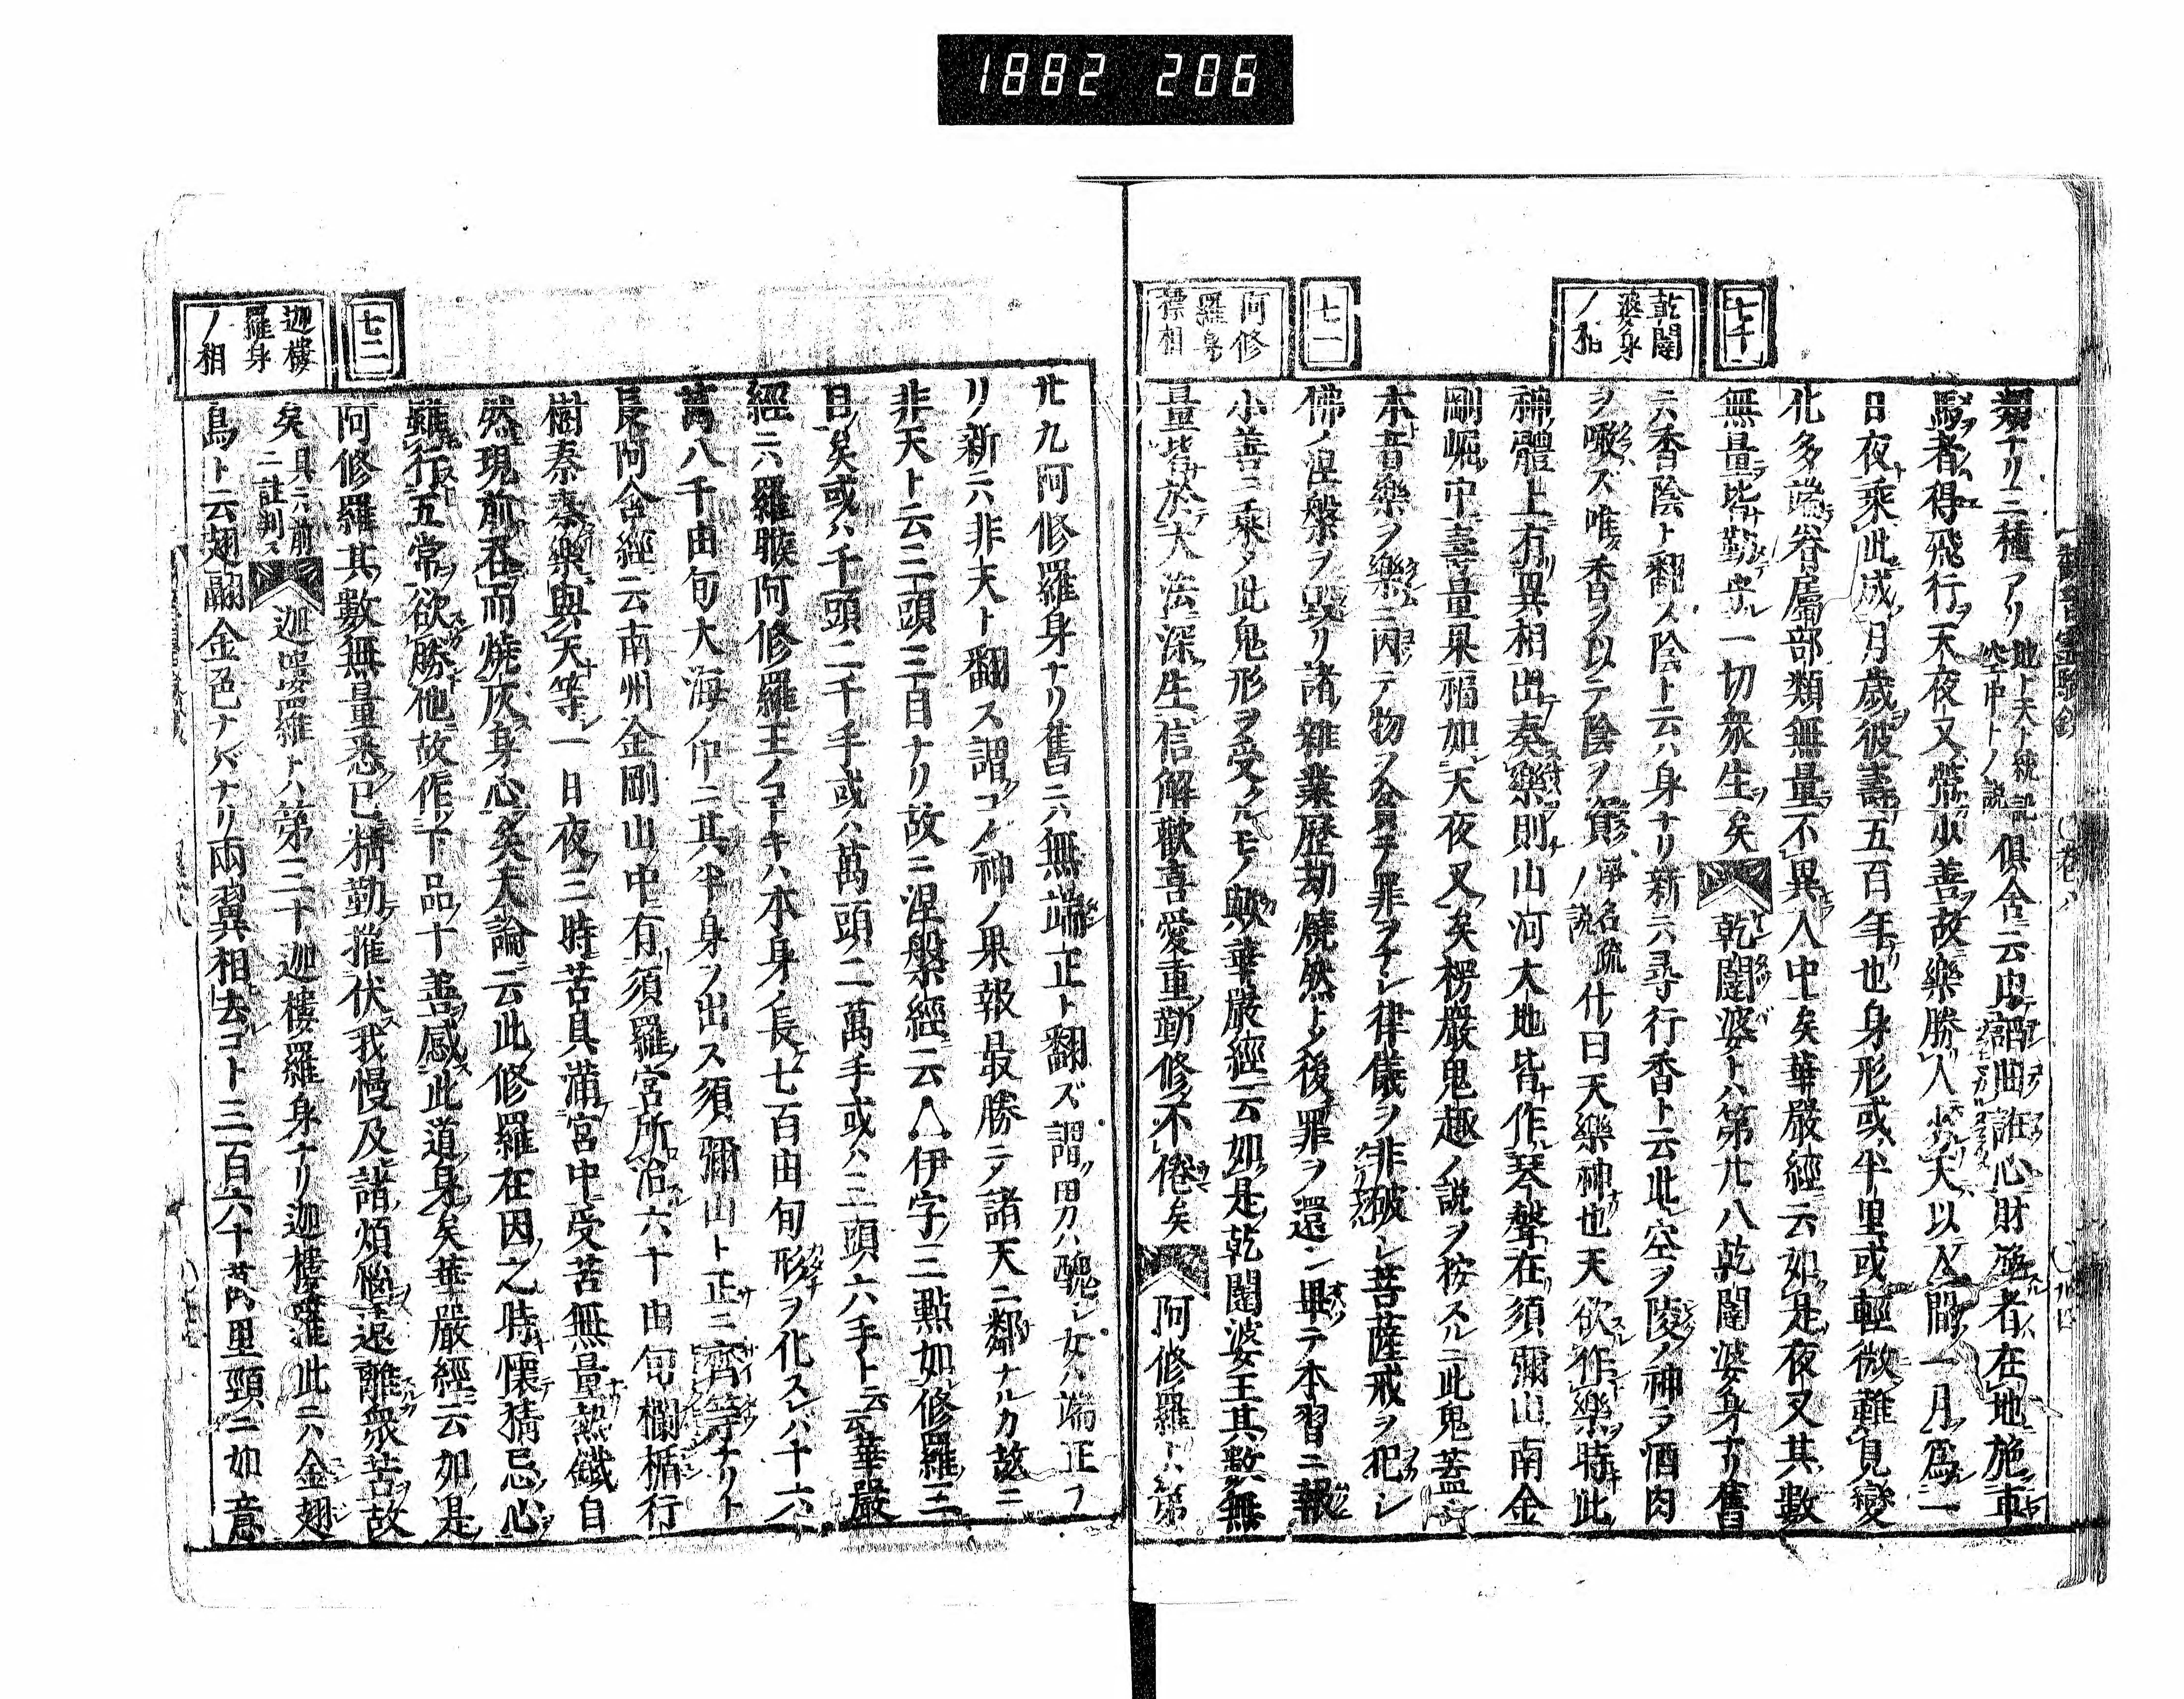 1882 206
七十
乾闥
婆身
ノ相
七一
阿修
羅身
標相
類ナリ三種アリ地ト天ト統説空中トノ説俱舍云由諂曲誑心財施者在地施車
馬者得飛行天夜叉常少善故樂勝人劣天以人間一月爲一
日夜乘此成月歲彼壽五百年也身形或半里或輕微難見變
化多端眷屬部類無量不異人中矣華嚴經云如是夜叉其數
無量皆勤守一切衆生矣 乾闥婆トハ第廿八乾闥婆身ナリ舊
云香陰ト翻ス陰ト云ハ身ナリ新云尋行香ト云此空ヲ陵ノ神ヲ酒肉
ヲ噉ズ唯香ヲ以テ陰ヲ資淨名疏ノ説什曰天樂神也天欲作樂時此
神體上有異相出奏樂則山河大地皆作琴聲在須彌山南金
剛崛中壽量果福如天夜叉矣楞嚴鬼趣ノ説ヲ按スルニ此鬼蓋
本音樂ヲ樂ニ因テ物ヲ貪テ罪ヲナシ律儀ヲ非破シ菩薩戒ヲ犯シ
佛ノ涅槃ヲ毀リ諸雜業歷劫燒然トシ後罪ヲ還ン畢テ本習ニ報
小善ニ乘シ此鬼形ヲ受クルモノ歟華嚴經云如是乾闥婆王其數無
量皆於大法深生信解歡喜愛重勤修不倦矣 阿修羅トハ第
廿九阿修羅身ナリ舊ニハ無端正ト翻ズ謂ク男ハ醜シ女ハ端正ナ
リ新ニハ非天ト翻ス謂コノ神ノ果報最勝ニシ諸天ニ鄰ナルカ故ニ
非天ト云三頭三目ナリ故ニ涅槃經云∴伊字三點如修羅三
目矣或ハ千頭二千手或ハ萬頭二萬手或ハ三頭六手ト云華嚴
經ニハ羅睺阿修羅王ノコトキハ本身ノ長七百由旬形ヲ化スレバ十六
萬八千由旬大海ノ中ニ其半身ヲ出ス須彌山ト正ニ齊等ナリト
長阿含經云南州金剛山中有須羅宮所治六十由旬欄楯行
樹奏奏樂與天等一日夜三時苦具滿宮中受苦無量熱鐵自
然現前呑而燒灰身心矣大論云此修羅在因之時懷猜忌心
雖行五常欲勝他故作下品十善感此道身矣華嚴經云如是
阿修羅其數無量悉已精勤摧伏我慢及諸煩惱遠離衆苦故
矣具ニハ前ニ註判ス 迦婁羅トハ第三十迦樓羅身ナリ迦樓羅此ニハ金翅
鳥ト云翅翮金色ナレバナリ兩翼相去コト三百六十萬里頸ニ如意
七二
迦樓
羅身
ノ相